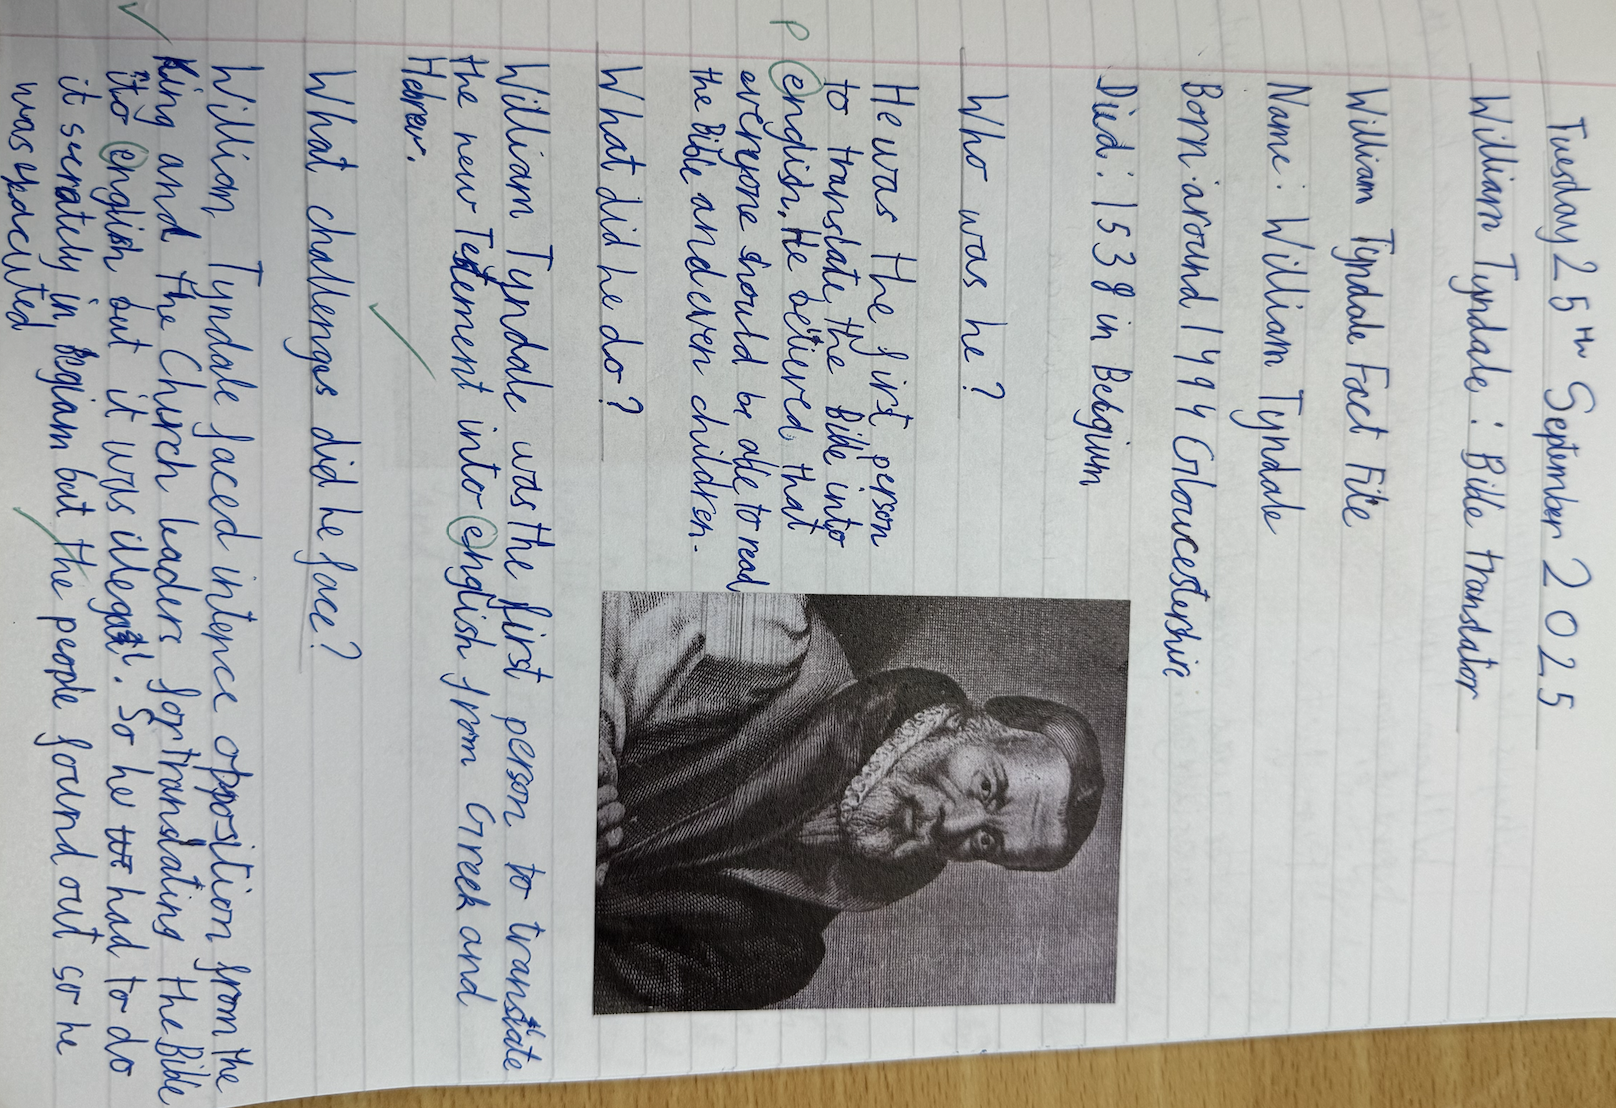 Tuesday 25th September 2025
William Tyndale : Bible translator
William Tyndale Fact File
Name: William Tyndale
Born: around 1494 Gloucestershire
Died: 1538 in Belgium
Who was he?
He was the first person
to translate the Bible into
P english. He believed that
everyone should be able to read
the Bible and even children.
What did he do?
William Tyndale was the first person to translate
the new Testement into english from Greek and
Hebrew.
What challenges did he face?
William Tyndale faced intence opposition from the
King and the Church leaders for translating the Bible
into english but it was illegal. So he had to do
it secrately in Begiam but the people found out so he
was expacuted